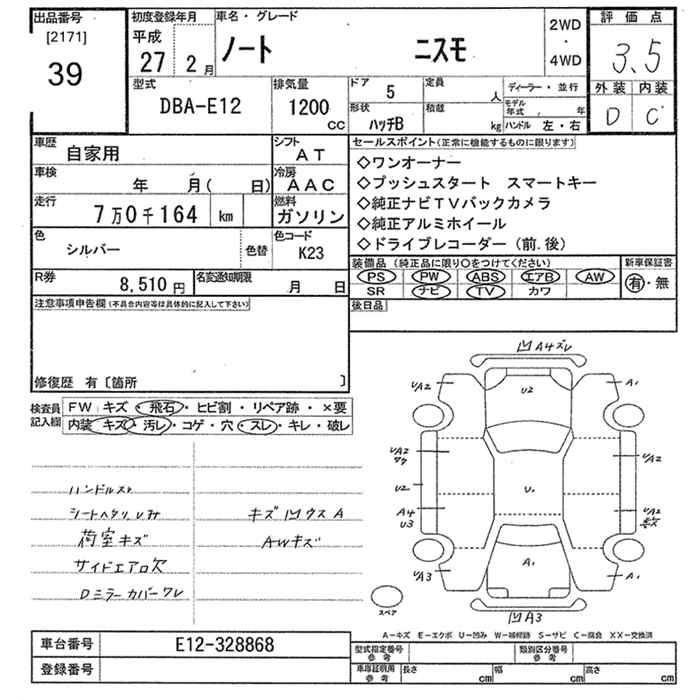 出品番号
[2171]
39
初度登録年月
平成
27年 2月
車名・グレード
ノート ニスモ
2WD
・
4WD
評価点
3.5
外装 内装
D C
型式
DBA-E12
排気量
1200
CC
ドア
5
定員
人
ディーラー・並行
形状
ハッチB
積載
kg
モデル年式 年
ハンドル 左・右
車歴
自家用
シフト
AT
車検
年 月( 日)
冷房
AAC
走行
7万0千164 km
燃料
ガソリン
色
シルバー
色替
色コード
K23
R券
8,510円
名変通知期限
月 日
セールスポイント(正常に機能するものに限ります)
◇ワンオーナー
◇プッシュスタート スマートキー
◇純正ナビTVバックカメラ
◇純正アルミホイール
◇ドライブレコーダー(前.後)
装備品(純正品に限り○をつけてください)
新車保証書
PS PW ABS エアB AW
SR ナビ TV カワ
有・無
後日品
注意事項申告欄(不具合内容等は具体的に記入して下さい)
修復歴 有〔箇所 〕
検査員
記入欄
FW キズ・飛石・ヒビ割・リペア跡・×要
内装 キズ・汚レ・コゲ・穴・スレ・キレ・破レ
ハンドルスレ
シートヘタリ
荷室キズ
サイドエアロ欠
Dミラーカバーワレ
キズ凹ウスA
AWキズ
凹A4ズレ
UA2
A1
U2
UA2
UA2
U2
U1
A4
U3
UA2
UA3
A1
A1
凹A3
スペア
A-キズ E-エクボ U-凹み W-補修跡 S-サビ C-腐食 XX-交換済
車台番号
E12-328868
登録番号
型式指定番号
参考
類別区分番号
参考
車庫証明用
参考
長さ cm
幅 cm
高さ cm